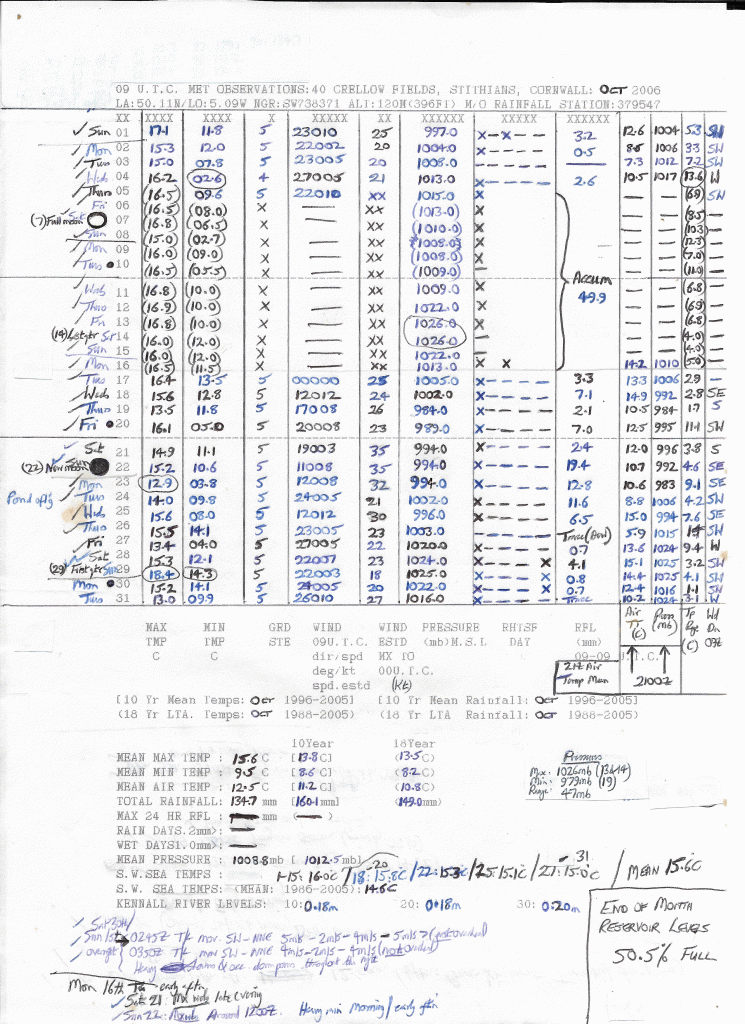 09 U.T.C. MET OBSERVATIONS:40 CRELLOW FIELDS, STITHIANS, CORNWALL: OCT 2006
LA:50.11N/LO:5.09W NGR:SW738371 ALT:120M(396FT) M/O RAINFALL STATION:379547
XX XXXX XXXX X XXXXX XX XXXXXX XXXXX XXXXXX
✓ Sun 01 17.1 11.8 5 23010 25 997.0 x-x--- 3.2 12.6 1004 5.3 SW
Mon 02 15.3 12.0 5 22002 20 1004.0 x---- 0.5 8.5 1006 3.3 SW
Tues 03 15.0 07.8 5 23005 20 1008.0 ----- — 7.3 1012 7.2 SW
Wed 04 16.2 02.6 4 27005 21 1013.0 x---- 2.6 10.5 1017 13.6 W
Thurs 05 (16.5) 09.6 5 22010 xx 1015.0 x — — (6.9) SW
Fri 06 (16.5) (08.0) x — xx (1013.0) x — — (8.5) —
(7) Full moon Sat 07 (16.8) (06.5) x — xx (1010.0) x — — (10.3) —
Sun 08 (15.0) (02.7) x — xx (1008.0) x — — (12.3) —
Mon 09 (16.0) (09.0) x — xx (1008.0) x — — (7.0) —
Tues 10 (16.5) (05.5) x — xx (1009.0) — — — (11.0) —
Accum 49.9
Wed 11 (16.8) (10.0) x — xx 1009.0 x — — (6.8) —
Thus 12 (16.9) (10.0) x — xx 1022.0 x — — (6.9) —
Fri 13 (16.8) (10.0) x — xx 1026.0 — — — (6.8) —
(14) Last qtr Sat 14 (16.0) (12.0) x — xx 1026.0 — — — (4.0) —
Sun 15 (16.0) (12.0) x — xx 1022.0 — — — (4.0) —
Mon 16 (16.5) (11.5) x — xx 1013.0 x x 14.2 1010 (5.0) —
Tues 17 16.4 13.5 5 00000 25 1005.0 x---- 3.3 13.3 1006 2.9 —
Wed 18 15.6 12.8 5 12012 24 1002.0 x---- 7.1 14.9 992 2.8 SE
Thus 19 13.5 11.8 5 17008 26 984.0 x---- 2.1 10.5 984 1.7 S
Fri 20 16.1 05.0 5 20008 23 989.0 x---- 7.0 12.5 995 11.1 SW
Sat 21 14.9 11.1 5 19003 35 994.0 x---- 2.4 12.0 996 3.8 S
(22) New moon Sun 22 15.2 10.6 5 11008 35 994.0 x---- 19.4 10.7 992 4.6 SE
Mon 23 12.9 03.8 5 12008 32 994.0 x---- 12.8 10.6 983 9.1 SE
Tues 24 14.0 09.8 5 24005 21 1002.0 x---- 11.6 8.8 1006 4.2 SW
Wed 25 15.6 08.0 5 12012 30 996.0 x---- 6.5 15.0 994 7.6 SE
Thus 26 15.5 14.1 5 23005 23 1003.0 Trace 5.9 1015 SW
Fri 27 13.4 04.0 5 27005 22 1020.0 x---- 0.7 13.6 1024 9.4 W
Sat 28 15.3 12.1 5 22007 23 1024.0 x---- x 4.1 15.1 1025 3.2 SW
(29) First qtr Sun 29 18.4 14.3 5 22003 18 1025.0 x---- 0.8 14.4 1025 4.1 SW
Mon 30 15.2 14.1 5 24005 20 1022.0 x---- 0.7 12.4 1016 1.1 SW
Tues 31 13.0 09.9 5 26010 27 1016.0 x---- Trace 10.2 1024 3.1 W
MAX MIN GRD WIND WIND PRESSURE RHTSF RFL Air Press Tp Wd
TMP TMP STE 09U.T.C. ESTD (mb)M.S.L DAY (mm) (C) (mb) Rge Dn
C C dir/spd MX TO 09-09 U.T.C. (C) 09Z
deg/kt 00U.T.C. 21Z Air
spd.estd (Kt) Temp Mean 2100Z
[10 Yr Mean Temps: Oct 1996-2005] [10 Yr Mean Rainfall: Oct 1996-2005]
(18 Yr LTA. Temps: Oct 1988-2005) (18 Yr LTA Rainfall: Oct 1988-2005)
10Year 18Year
MEAN MAX TEMP : 15.6 C [13.8 C] (13.5 C)
MEAN MIN TEMP : 9.5 C [8.6 C] (8.2 C)
MEAN AIR TEMP : 12.5 C [11.2 C] (10.8 C)
TOTAL RAINFALL: 134.7 mm [160.1 mm] (149.0mm)
MAX 24 HR RFL : — mm (—)
RAIN DAYS.2mm>: —
WET DAYS1.0mm>: —
Pressures
Max: 1026mb (13&14)
Min: 979mb (19)
Range: 47mb
MEAN PRESSURE : 1008.8mb [ 1012.5 mb]
S.W.SEA TEMPS : 1-15: 16.0°C /18-20: 15.8C /22: 15.3C /25: 15.1°C /27-31: 15.0°C / MEAN 15.6C
S.W. SEA TEMPS: (MEAN: 1986-2005): 14.6C
KENNALL RIVER LEVELS: 10: 0.18m 20: 0.18m 30: 0.20m
END OF MONTH
RESERVOIR LEVELS
50.5% FULL
Sat 30th/
Sun 1st 0245Z TK mov. SW-NNE
overnight 0350Z TK mov SW-NNE (not overhead)
Mon 16th early aftn
✓ Sat 21
✓ Sun 22: Around 1200Z Heavy rain Morning / early aftn